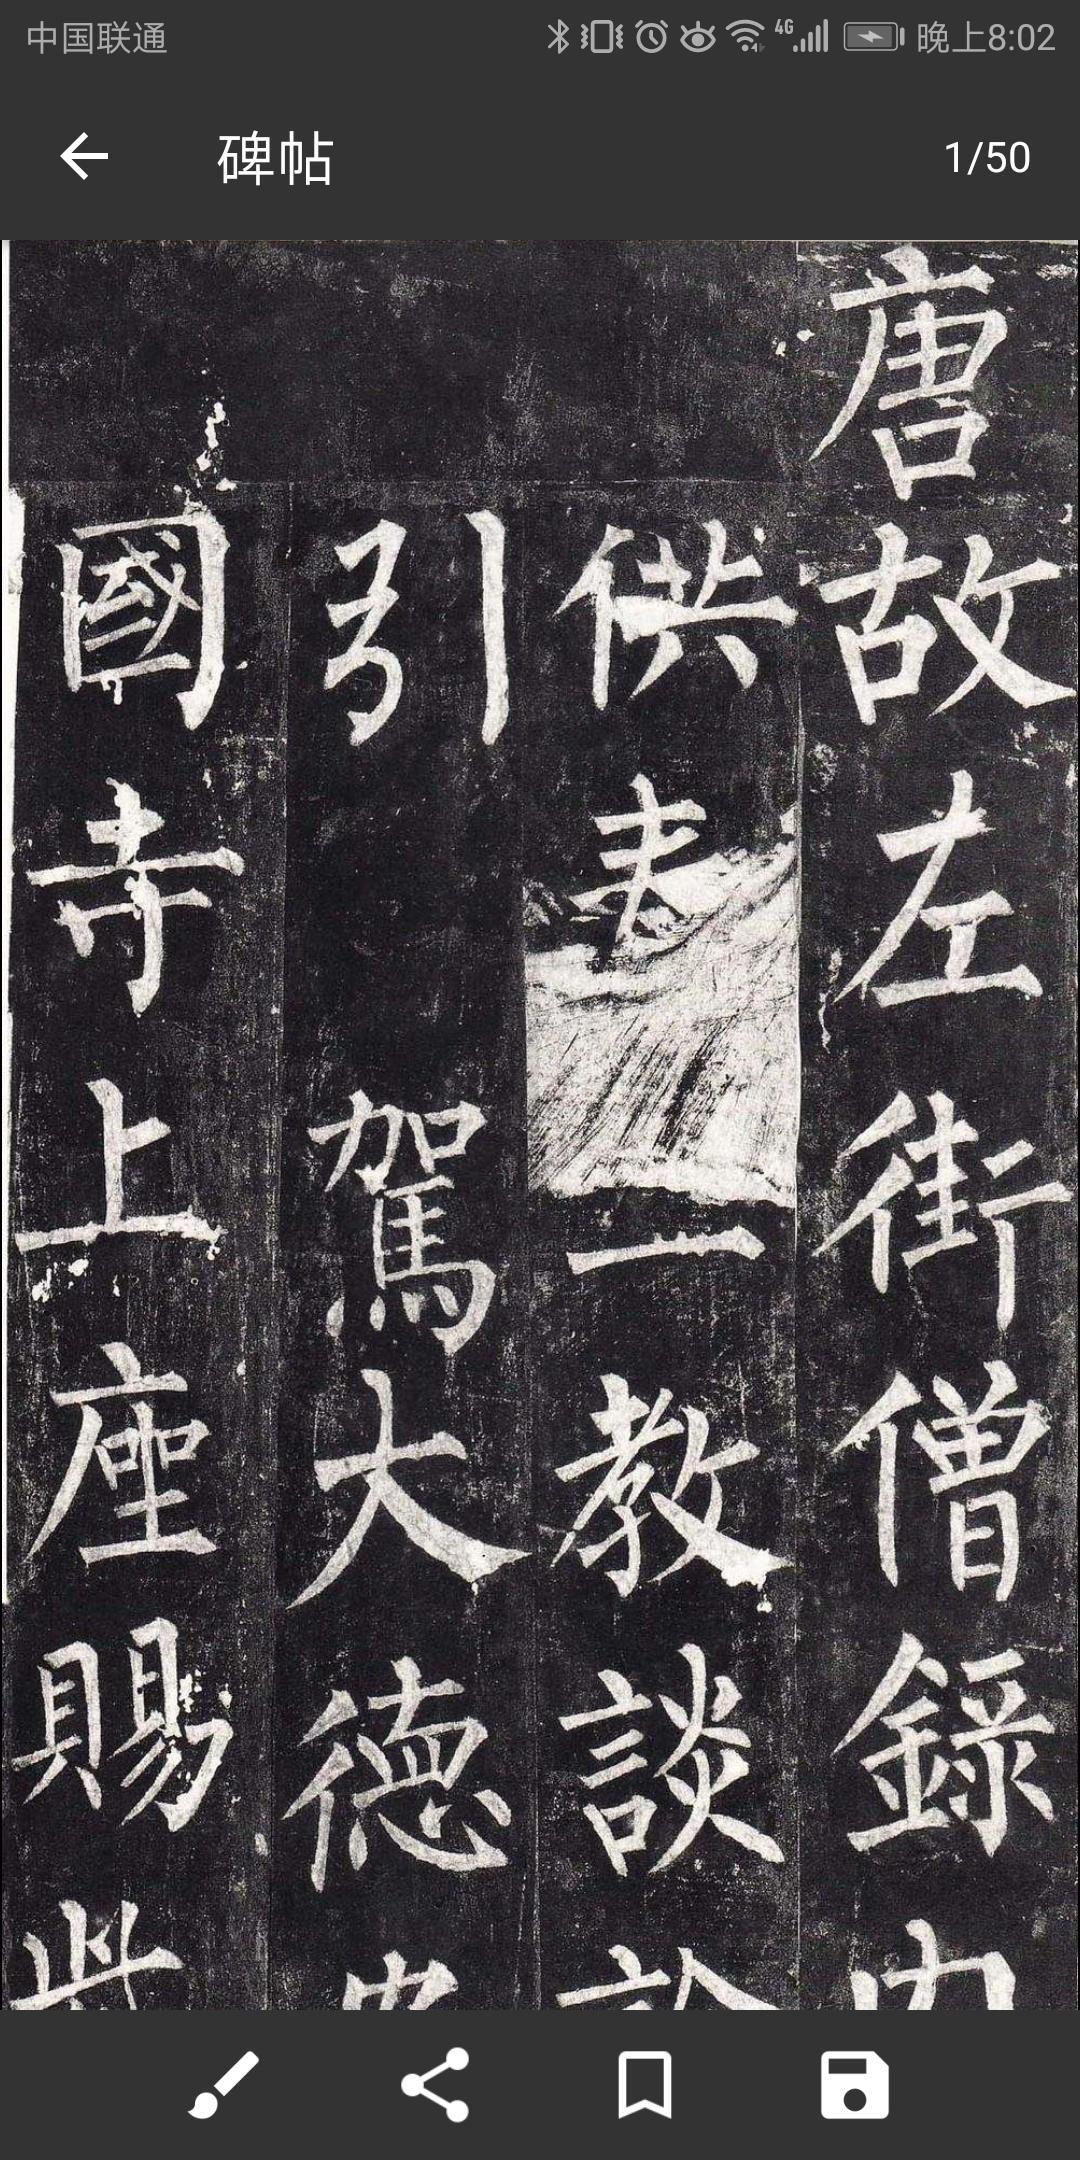 中国联通 4G 晚上8:02
碑帖 1/50
唐故左街僧錄內
供奉 一教談論
引 駕大德安
國寺上座賜紫